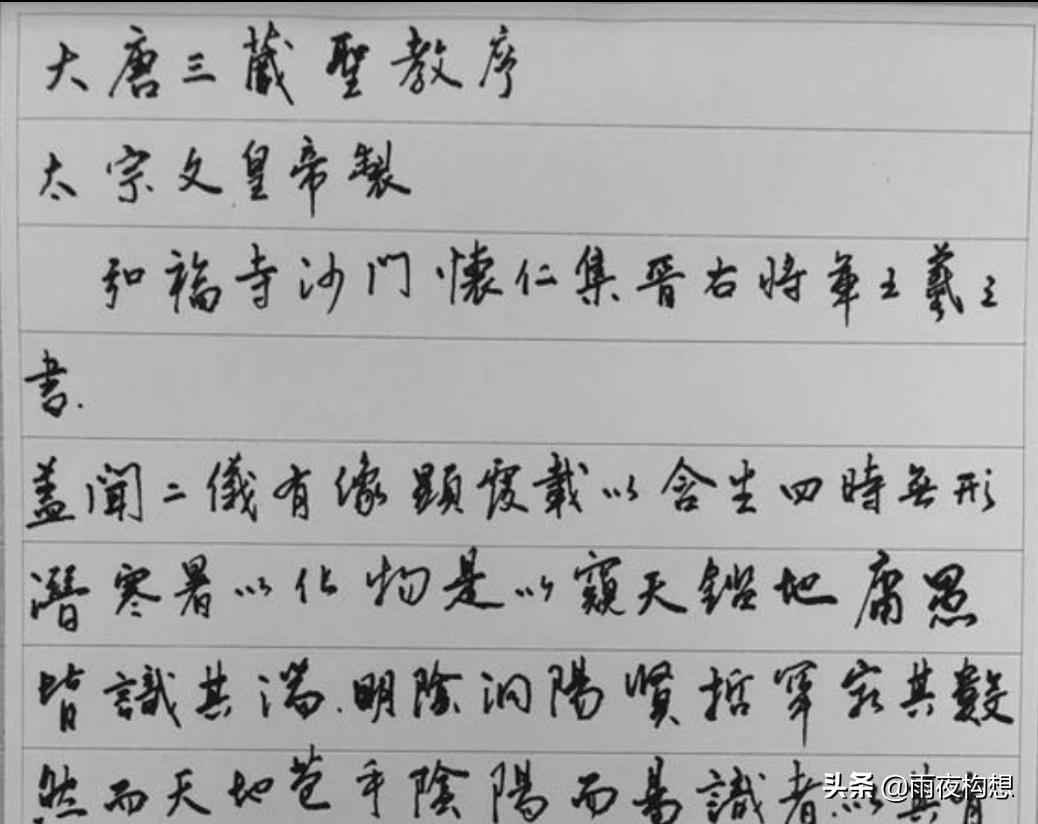 大唐三藏聖教序
太宗文皇帝製
弘福寺沙門懷仁集晉右將軍王羲之
書.
盖聞二儀有像顯覆載以含生四時無形
潛寒暑以化物是以窺天鑑地庸愚
皆識其端.明陰洞陽賢哲罕窮其數
然而天地苞乎陰陽而易識者以其有
头条 @雨夜构想